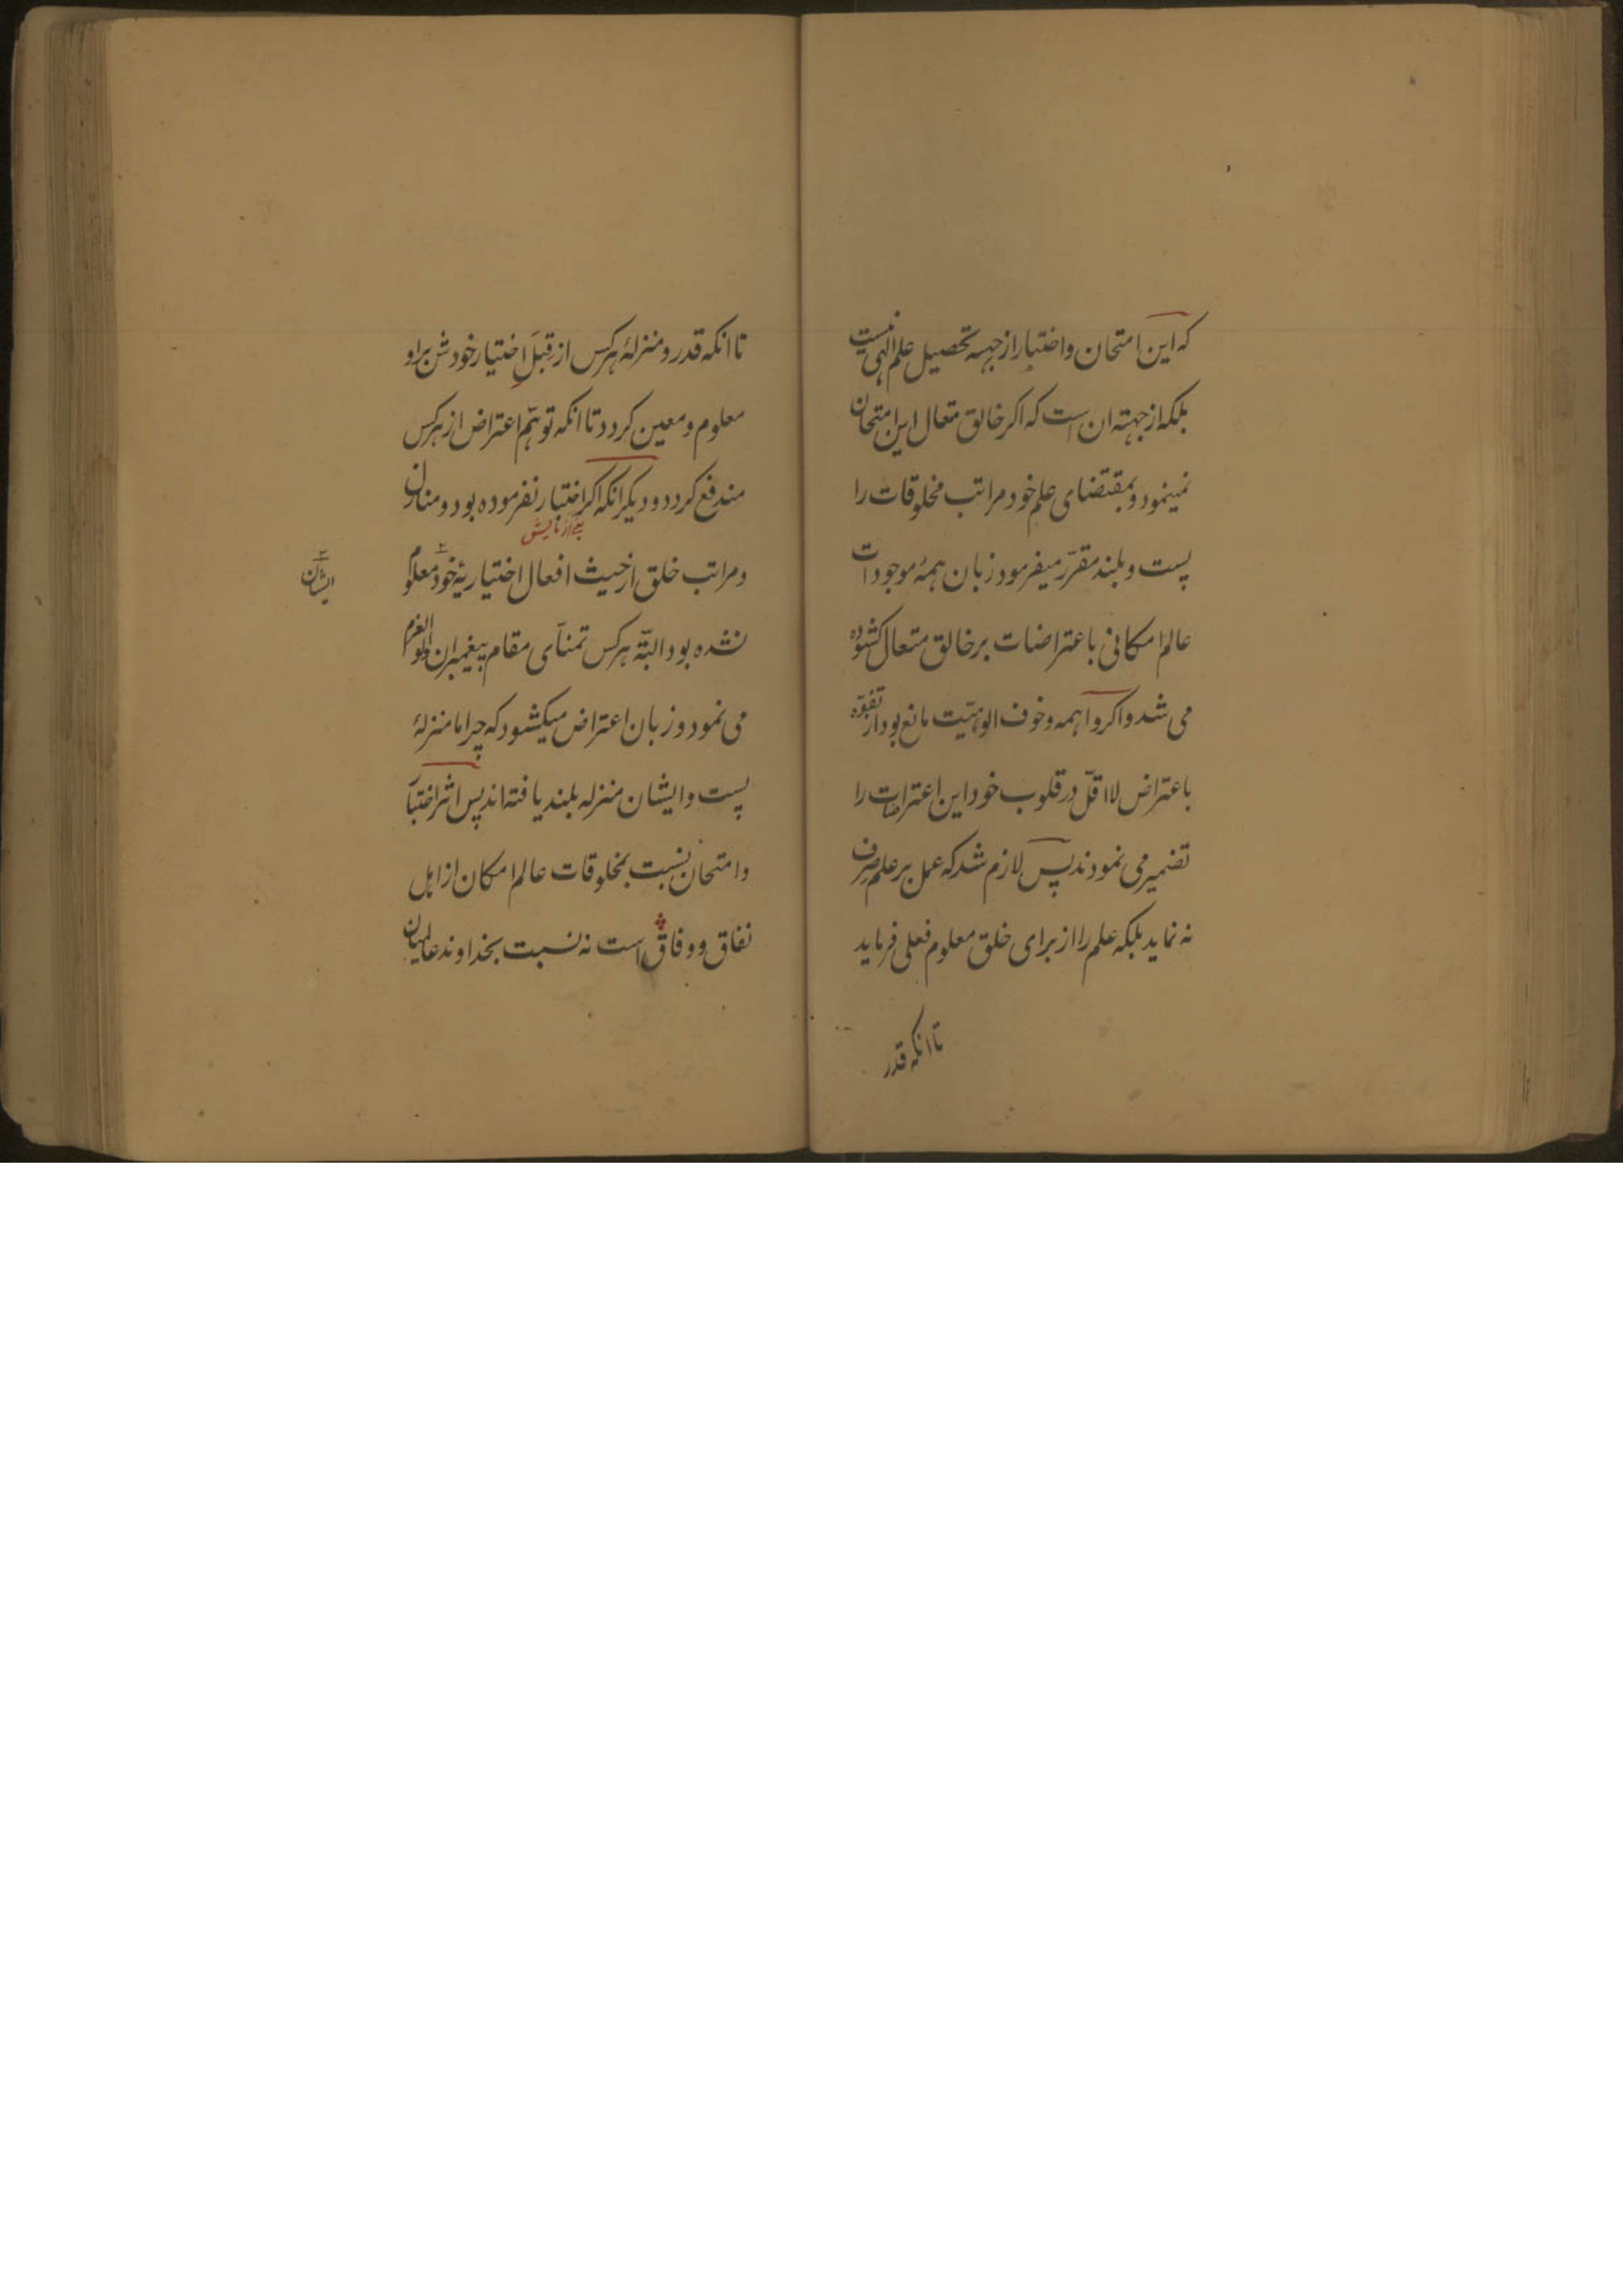 که این امتحان واختبار از جهه تحصیل علم الهی نیست
بلکه از جهته ان است که اکر خالق متعال این امتحان
نمینمود و بمقتضای علم خود مراتب مخلوقات را
پست و بلند مقرّر میفرمود زبان همهٔ موجودات
عالم امکانی باعتراضات بر خالق متعال کشوده
می شد و اکر واهمه وخوف الوهیّت مانع بود از تفوّه
باعتراض لااقلّ در قلوب خود این اعتراضات را
تضمیر می نمودند پس لازم شد که عمل بر علم صرف
نه نماید بلکه علم را از برای خلق معلوم فعلی فرماید
تا انکه قدر
تا انکه قدر و منزلهٔ هرکس از قبَلِ اختیار خودش بر او
معلوم و معین کردد تا انکه توهّم اعتراض از هرکس
مندفع کردد و دیکر انکه اکر اختبار نفرموده بود و منازل
یعنی ازمایش
ومراتب خلق از حیث افعال اختیاریهٔ خود معلوم
ایشان
نشده بود البتّه هرکس تمنّای مقام پیغمبران اولو العزم
می نمود و زبان اعتراض میکشود که چرا ما منزلهٔ
پست و ایشان منزله بلند یافته اند پس اثر اختبار
وامتحان نسبت بمخلوقات عالم امکان از اهل
نفاق و وفاق است نه نسبت بخداوند عالمیان